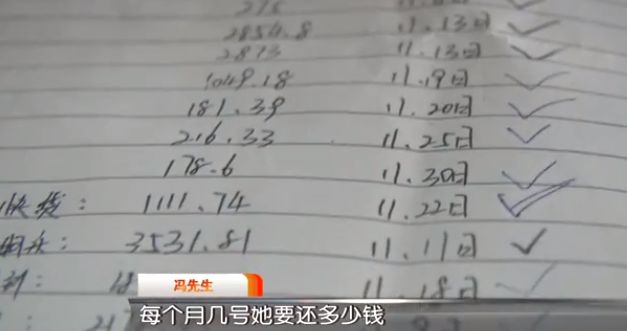 2854.8 11.13日
2873 11.13日
1049.18 11.19日
181.39 11.20日
216.33 11.25日
178.6 11.30日
快钱: 1111.74 11.22日
3531.81 11.11日
11.18日
冯先生
每个月几号她要还多少钱